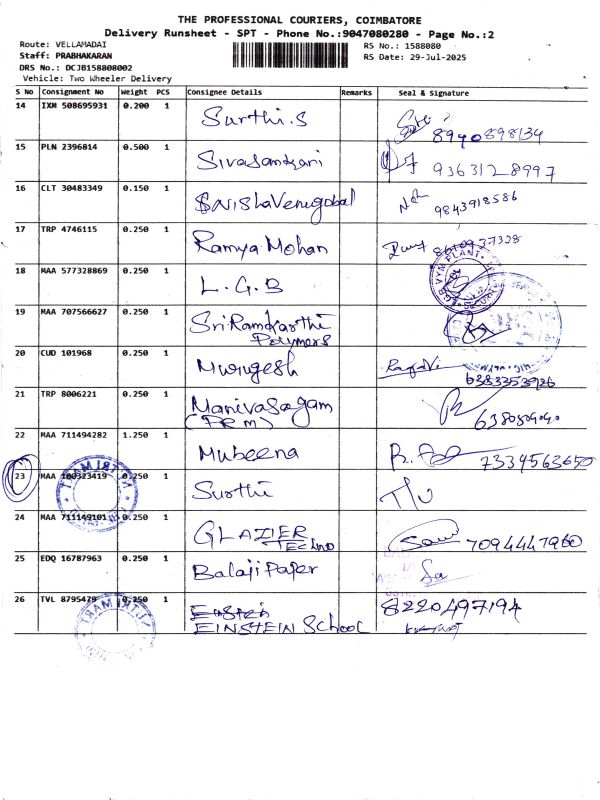 THE PROFESSIONAL COURIERS, COIMBATORE
Delivery Runsheet - SPT - Phone No.:9047080280 - Page No.:2
Route: VELLAMADAI
RS No.: 1588080
Staff: PRABHAKARAN
RS Date: 29-Jul-2025
DRS No.: DCJB158808002
Vehicle: Two Wheeler Delivery
S No Consignment No Weight PCS Consignee Details Remarks Seal & Signature
14 IXM 508695931 0.200 1 Surthi.S 8940898134
15 PLN 2396814 0.500 1 Sivasankari 9363128997
16 CLT 30483349 0.150 1 SnishaVenugobal 9843918586
17 TRP 4746115 0.250 1 Ramya Mohan
18 MAA 577328869 0.250 1 L.G.B
19 MAA 707566627 0.250 1 SriRamkarthi
Polymers
20 CUD 101968 0.250 1 Murugesh
21 TRP 8006221 0.250 1 Manivasagam
(PRM)
22 MAA 711494282 1.250 1 Mubeena 7339563650
23 MAA 100323419 0.250 1 Surthi
24 MAA 711149101 0.250 1 GLAZIER
TECHNO 7094447960
25 EDQ 16787963 0.250 1 Balaji Paper
26 TVL 8795479 0.250 1 8220497194
EINSTEIN School